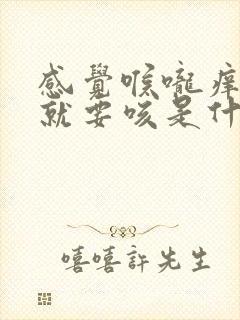 感覺喉嚨癢
就要咳是什
嘻嘻許先生